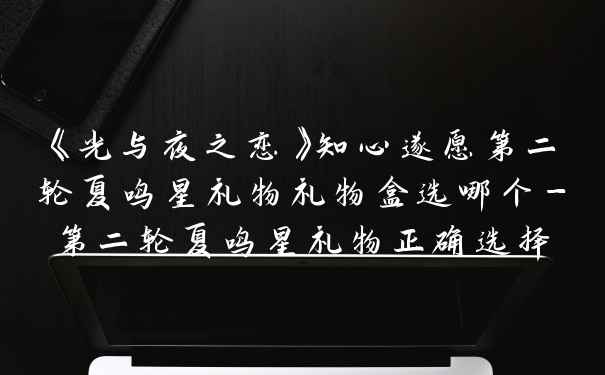 《光与夜之恋》知心遂愿第二
轮夏鸣星礼物礼物盒选哪个-
第二轮夏鸣星礼物正确选择